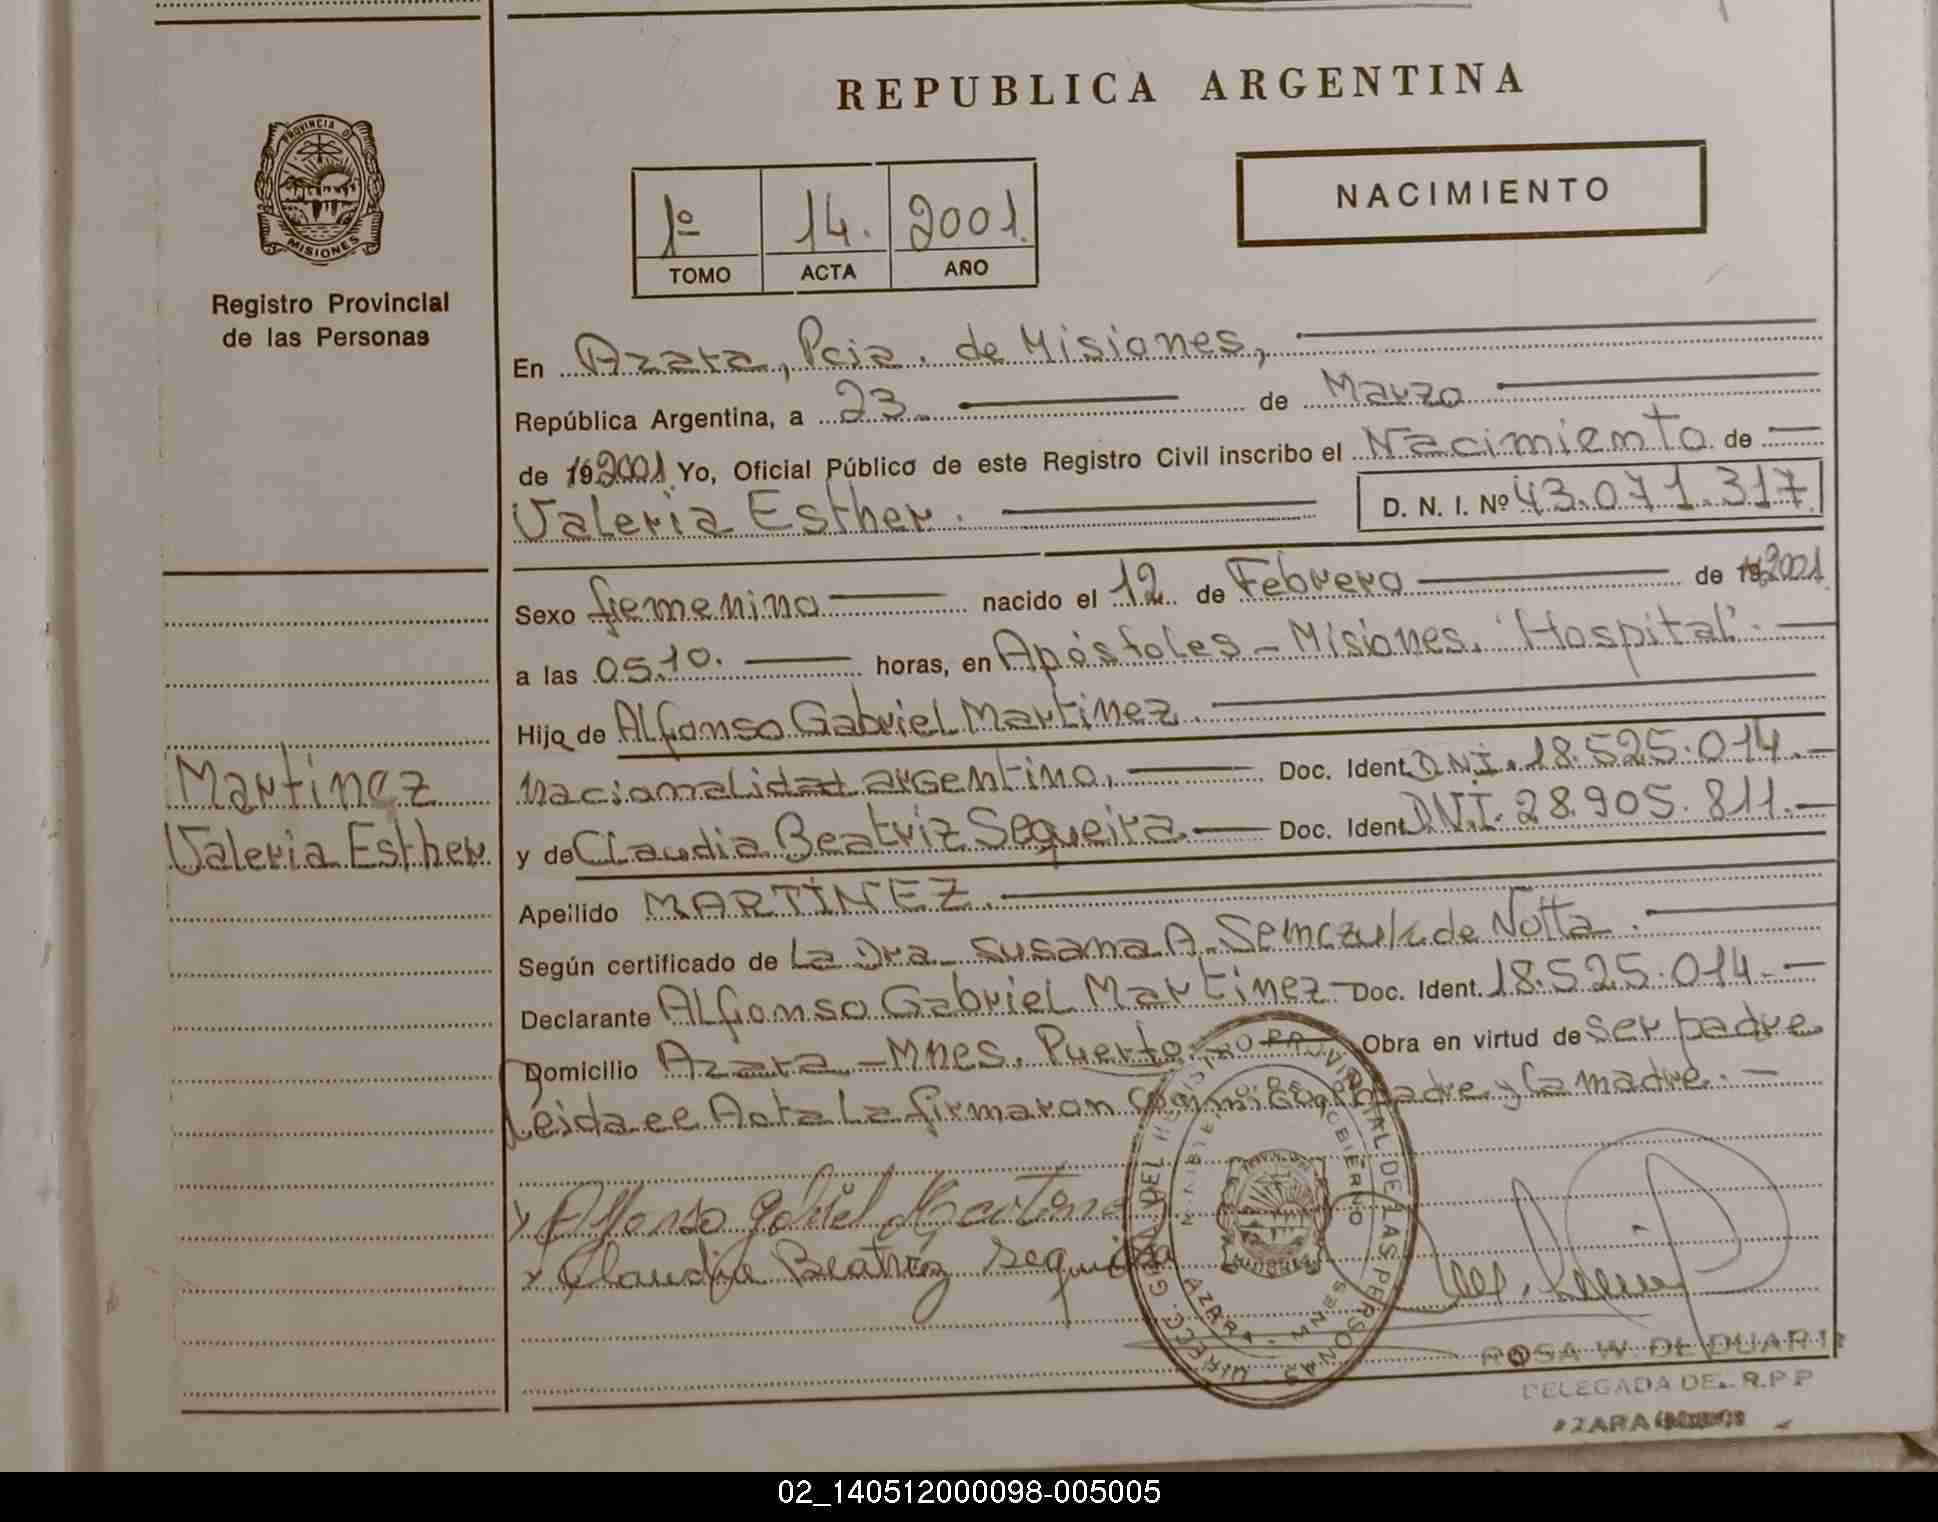 REPUBLICA ARGENTINA
NACIMIENTO
PROVINCIA D
MISIONES
Registro Provincial
de las Personas
1º 14. 2001.
TOMO ACTA AÑO
En Azara, Pcia. de Misiones,
República Argentina, a 23 de Marzo
de 192001 Yo, Oficial Público de este Registro Civil inscribo el Nacimiento de
Valeria Esther. D. N. I. Nº 43.071.317
Sexo femenino nacido el 12 de Febrero de 192001
a las 05.10. horas, en Apóstoles - Misiones. "Hospital".
Hija de Alfonso Gabriel Martinez.
nacionalidad argentino, Doc. Ident. D.N.I. 18.525.014.-
y de Claudia Beatriz Sequeira Doc. Ident. D.N.I. 28.905.811.-
Martinez
Valeria Esther
Apellido MARTINEZ.
Según certificado de La Dra. Susana A. Semczuk de Notta.
Declarante Alfonso Gabriel Martinez - Doc. Ident. 18.525.014.-
Domicilio Azara - Mnes. Puerto Obra en virtud de ser padre
Leida el Acta La firmaron conmigo el padre y la madre. -
Alfonso Gabriel Martinez
Claudia Beatriz Sequeira
DIRECC. GRAL DEL REGISTRO PROVINCIAL DE LAS PERSONAS
MINISTERIO DE GOBIERNO
AZARA - MNES
ROSA W. DE DUARTE
DELEGADA DE. R.P.P
AZARA
02_140512000098-005005